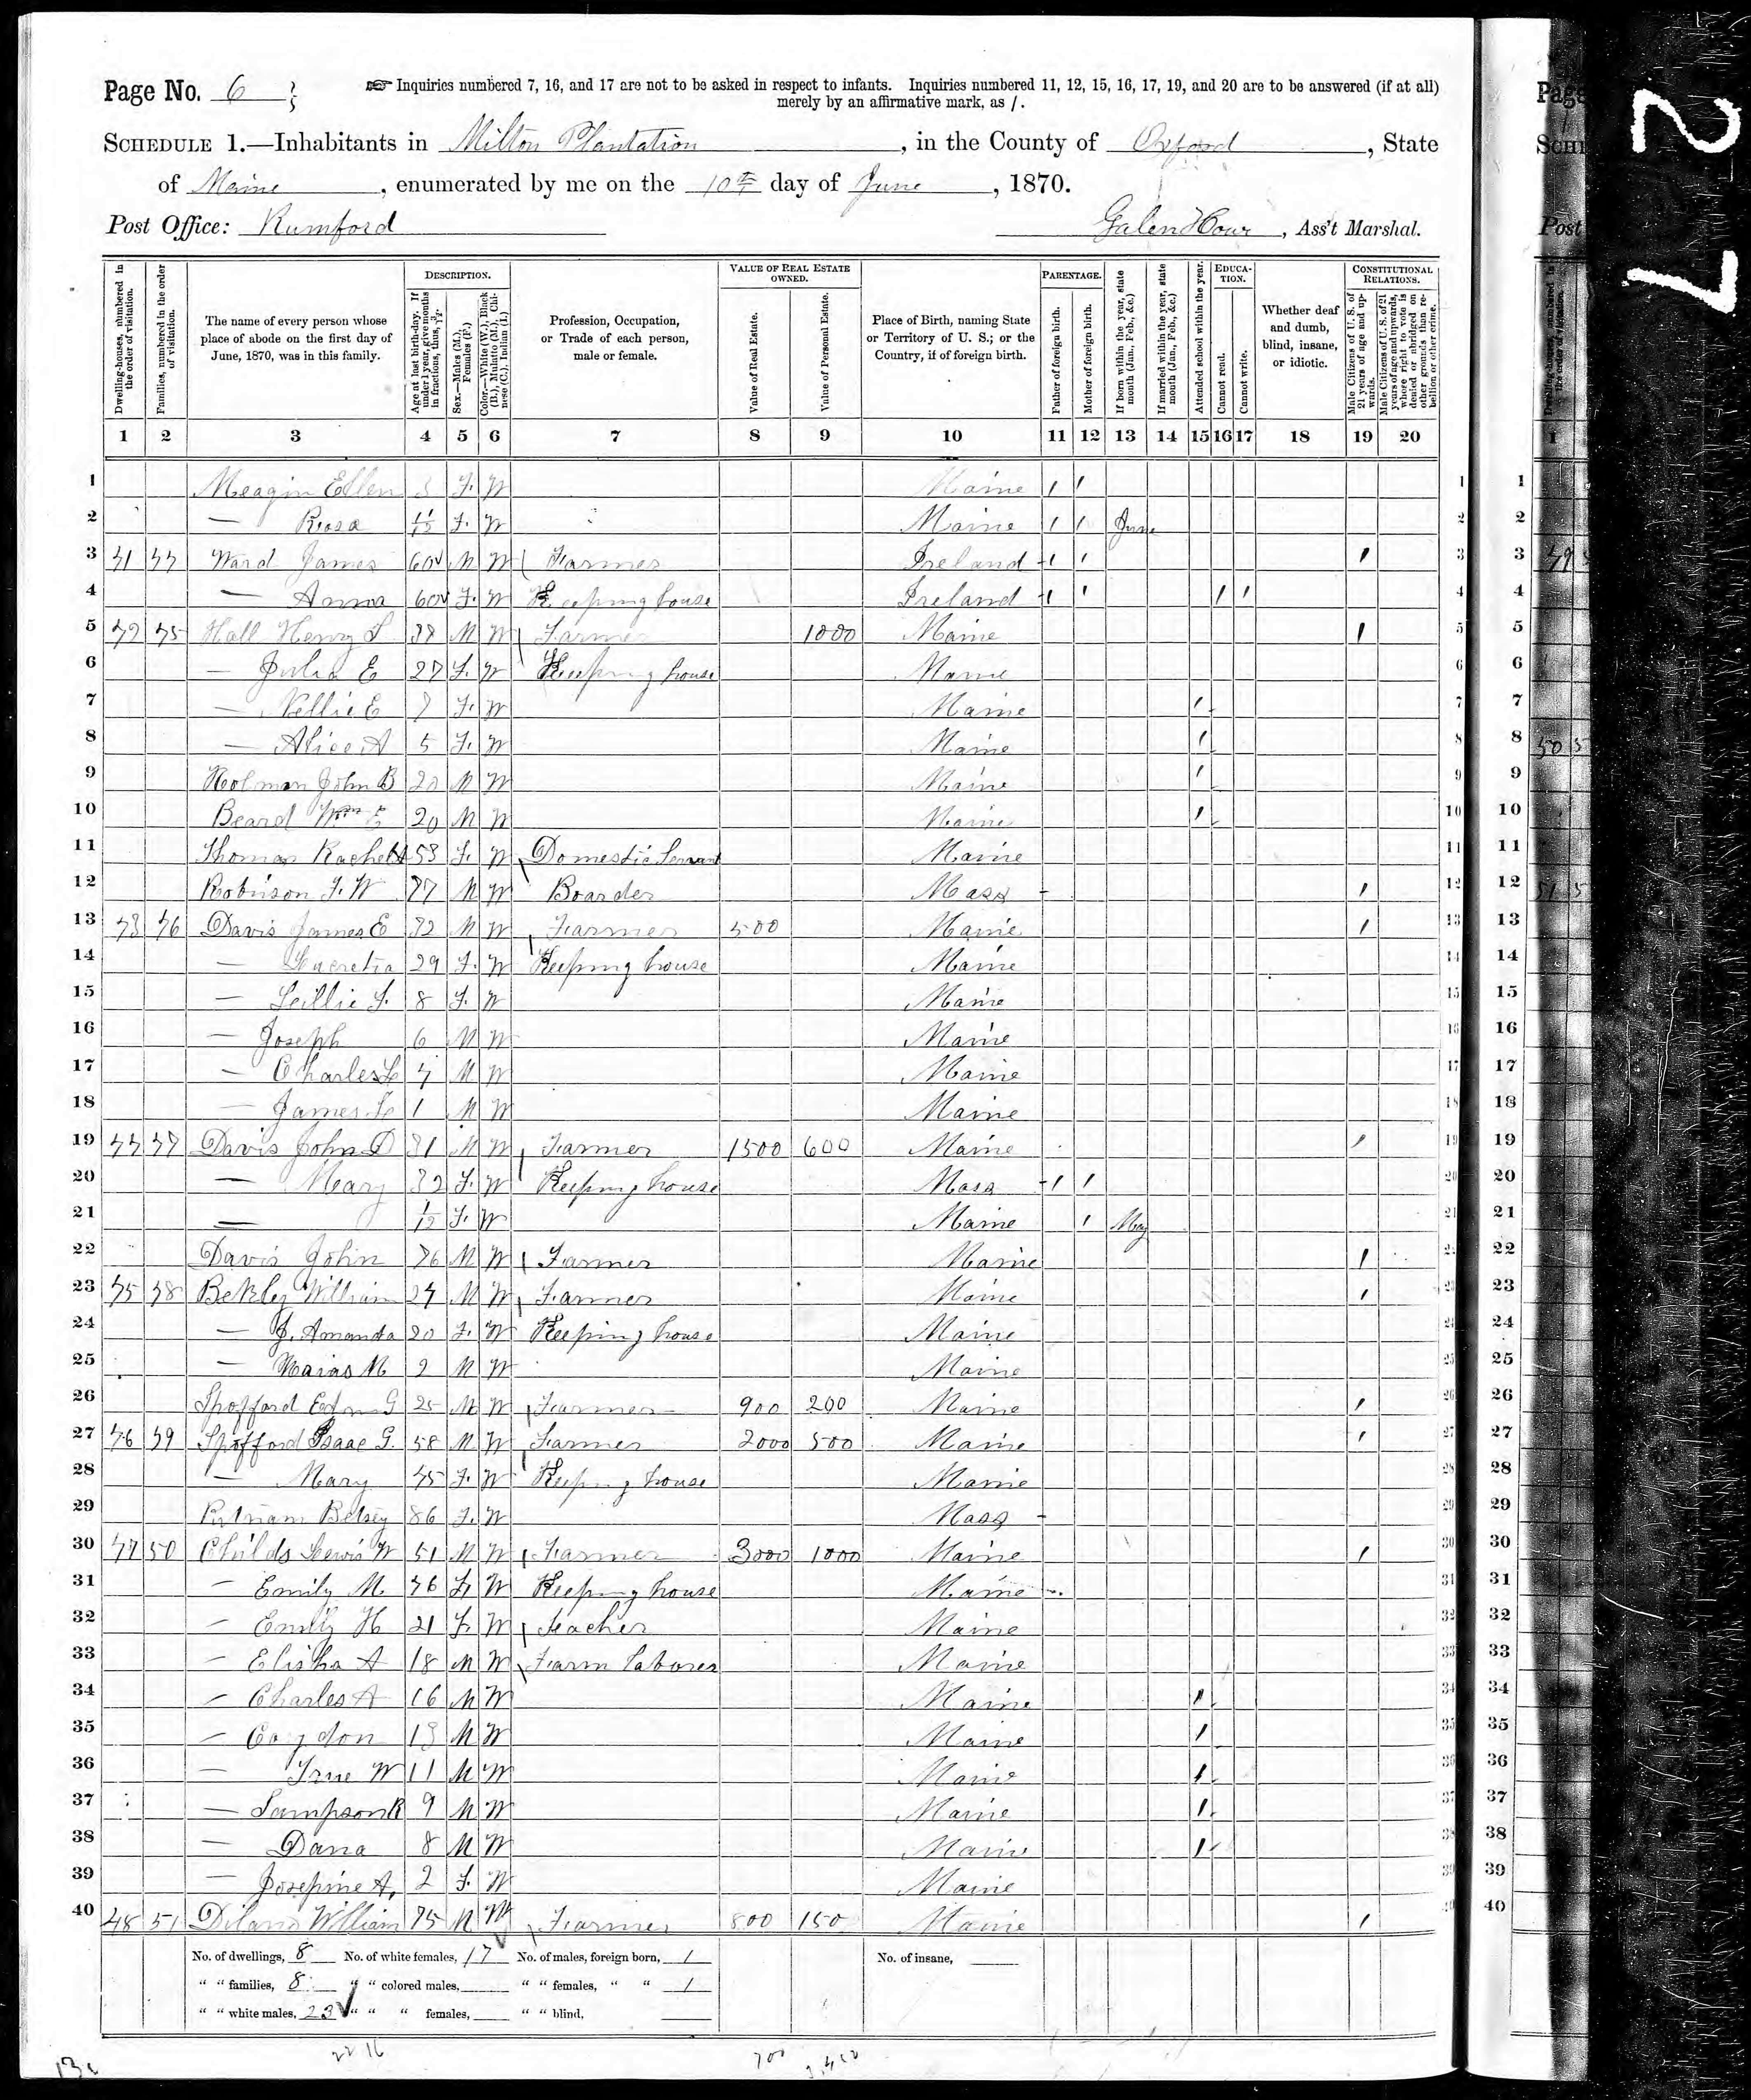 Page No. 6
☞ Inquiries numbered 7, 16, and 17 are not to be asked in respect to infants. Inquiries numbered 11, 12, 15, 16, 17, 19, and 20 are to be answered (if at all)
merely by an affirmative mark, as /.
SCHEDULE 1.—Inhabitants in Milton Plantation, in the County of Oxford, State
of Maine, enumerated by me on the 10th day of June, 1870.
Post Office: Rumford
Galen Howe, Ass't Marshal.
Dwelling-houses, numbered in the order of visitation.
Families, numbered in the order of visitation.
The name of every person whose place of abode on the first day of June, 1870, was in this family.
DESCRIPTION.
Age at last birth-day. If under 1 year, give months in fractions, thus, 3/12.
Sex.—Males (M.), Females (F.)
Color.—White (W.), Black (B.), Mulatto (M.), Chinese (C.), Indian (I.)
Profession, Occupation, or Trade of each person, male or female.
VALUE OF REAL ESTATE OWNED.
Value of Real Estate.
Value of Personal Estate.
Place of Birth, naming State or Territory of U. S.; or the Country, if of foreign birth.
PARENTAGE.
Father of foreign birth.
Mother of foreign birth.
If born within the year, state month (Jan., Feb., &c.)
If married within the year, state month (Jan., Feb., &c.)
Attended school within the year.
EDUCATION.
Cannot read.
Cannot write.
Whether deaf and dumb, blind, insane, or idiotic.
CONSTITUTIONAL RELATIONS.
Male Citizens of U. S. of 21 years of age and upwards.
Male Citizens of U. S. of 21 years of age and upwards, whose right to vote is denied or abridged on other grounds than rebellion or other crime.
1 2 3 4 5 6 7 8 9 10 11 12 13 14 15 16 17 18 19 20
1 Meagin Ellen 3 F. W Maine / /
2 — Rosa F. W Maine / / June
3 41 44 Ward James 60 M W Farmer Ireland / / /
4 — Anna 60 F. W Keeping house Ireland / / / /
5 42 45 Hall Henry 38 M W Farmer 1000 Maine /
6 — Julia E 27 F. W Keeping house Maine
7 — Nellie E 7 F. W Maine /
8 — Alice A 5 F. W Maine /
9 Holman John B 20 M W Maine /
10 Beard Wm E 20 M W Maine /
11 Thomas Rachel 53 F. W Domestic Servant Maine
12 Robinson F. W 77 M W Boarder Mass /
13 43 46 Davis James E 32 M W Farmer 500 Maine /
14 — Lucretia 29 F. W Keeping house Maine
15 — Lillie F. 8 F. W Maine
16 — Joseph 6 M W Maine
17 — Charles 4 M W Maine
18 — James 1 M W Maine
19 44 47 Davis John D 31 M W Farmer 1500 600 Maine /
20 — Mary 32 F. W Keeping house Mass / /
21 — 1/12 F. W Maine / May
22 Davis John 76 M W Farmer Maine /
23 45 48 William 24 M W Farmer Maine /
24 — J. Amanda 20 F. W Keeping house Maine
25 — M 2 M W Maine
26 Spofford G 25 M W Farmer 900 200 Maine /
27 46 49 Spofford Isaac G. 58 M W Farmer 2000 500 Maine /
28 — Mary 45 F. W Keeping house Maine
29 Putnam Betsey 86 F. W Mass
30 47 50 Childs Lewis W 51 M W Farmer 3000 1000 Maine /
31 — Emily M. 46 F. W Keeping house Maine
32 — Emily H 21 F. W Teacher Maine
33 — Elisha A 18 M W Farm laborer Maine
34 — Charles A 16 M W Maine /
35 — Corydon 13 M W Maine /
36 — True W 11 M W Maine /
37 — Sampson R 9 M W Maine /
38 — Dana 8 M W Maine /
39 — Josepine A. 2 F. W Maine
40 48 51 William 75 M W Farmer 800 150 Maine /
No. of dwellings, 8 No. of white females, 17 No. of males, foreign born, 1 No. of insane,
" " families, 8 " " colored males, " " females, " " 1
" " white males, 23 " " " females, " " blind,
22 16